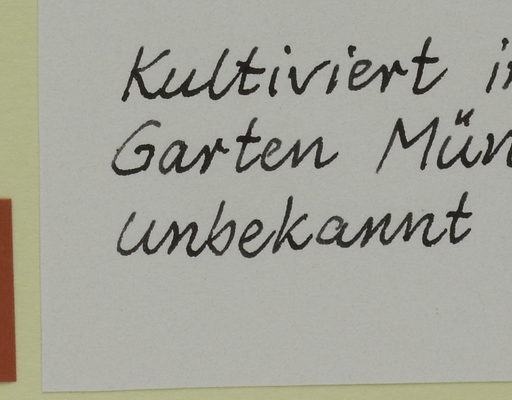 Kultiviert
Garten
unbekannt